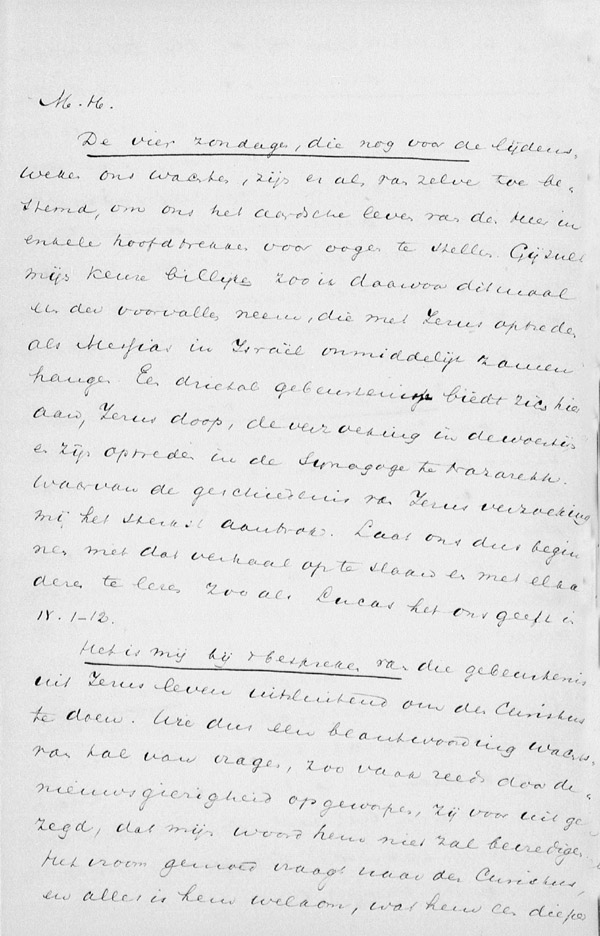 M. H.
De vier zondagen, die nog voor de lijdens-
weken ons wachten, zijn er als van zelve toe be-
stemd, om ons het aardsche leven van den Heer in
enkele hoofdtrekken voor oogen te stellen. Gij zult
mijn keuze billijken zoo ik daarvoor ditmaal
een der voorvallen neem, die met Jezus optreden
als Messias in Israël onmiddelijk zamen
hangen. Een drietal gebeurtenissen biedt zich hier
aan, Jezus doop, de verzoeking in de woestijn
en zijn optreden in de Synagoge te Nazareth.
waarvan de geschiedenis van Jezus verzoeking
mij het sterkst aantrok. Laat ons dus begin
nen met dat verhaal op te slaan en met elkan
deren te lezen zoo als Lucas het ons geeft in
IV. 1-12.
Het is mij bij bespreken van die gebeurtenis
uit Jezus leven uitsluitend om den Christus
te doen. Wie dus een beantwoording wacht
van tal van vragen, zoo vaak reeds door de
nieuwsgierigheid opgeworpen, zij voor uit ge
zegd, dat mijn woord hem niet zal bevredigen.
Het vroom gemoed vraagt naar den Christus,
en alles is hem welkom, wat hem een dieper